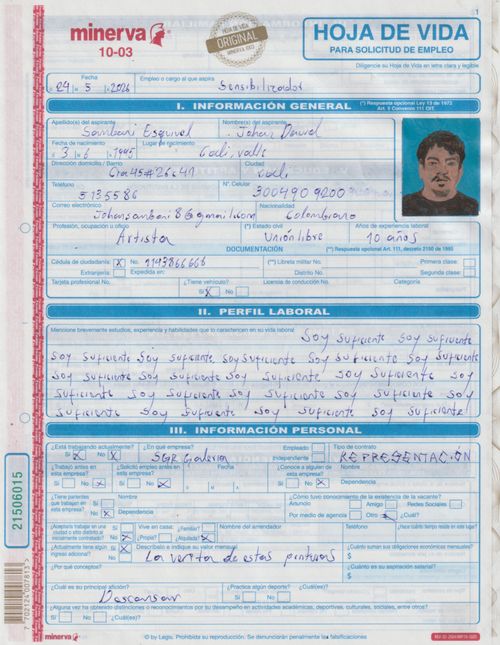 minerva
10-03
HOJA DE VIDA
ORIGINAL
MINERVA 1003
HOJA DE VIDA
PARA SOLICITUD DE EMPLEO
Diligencie su Hoja de Vida en letra clara y legible
Fecha
Empleo o cargo al que aspira
29 5 2026 Sensibilizador
I. INFORMACIÓN GENERAL
(*) Respuesta opcional Ley 13 de 1972
Art. 1 Convenio 111 OIT
Apellido(s) del aspirante Nombre(s) del aspirante
Samboni Esquivel Johan David
Fecha de nacimiento Lugar de nacimiento
3 6 1995 Cali, valle
Dirección domicilio / Barrio Ciudad
Cra 45 # 26 c 41 Cali
Teléfono N°. Celular
5135586 3004909200
Correo electrónico Nacionalidad
Johansamboni8@gmail.com Colombiano
Profesión, ocupación u oficio (*) Estado civil Años de experiencia laboral
Artista Unión libre 10 años
DOCUMENTACIÓN (**) Respuesta opcional Art. 111, decreto 2150 de 1995
Cédula de ciudadanía: X No. 1193866668 (**) Libreta militar No. Primera clase:
Extranjería: Expedida en: Distrito No. Segunda clase:
Tarjeta profesional No. ¿Tiene vehículo? Licencia de conducción No. Categoría
Sí X No
II. PERFIL LABORAL
Mencione brevemente estudios, experiencia y habilidades que lo caractericen en su vida laboral
Soy suficiente Soy suficiente
Soy suficiente Soy suficiente Soy suficiente Soy suficiente Soy suficiente
Soy suficiente Soy suficiente Soy suficiente Soy suficiente Soy
suficiente Soy suficiente Soy suficiente Soy suficiente Soy
suficiente Soy suficiente Soy suficiente Soy suficiente
III. INFORMACIÓN PERSONAL
¿Está trabajando actualmente? ¿En qué empresa? Empleado Tipo de contrato
Sí X No X SGR Galeria Independiente REPRESENTACIÓN
¿Trabajó antes en esta empresa? ¿Solicitó empleo antes en esta empresa? Fecha ¿Conoce a alguien de esta empresa? Nombre
Sí No X Sí No X Sí No X Dependencia
¿Tiene parientes que trabajen en esta empresa? Nombre
Sí No X Dependencia
¿Cómo tuvo conocimiento de la existencia de la vacante?
Anuncio Amigo Redes Sociales
Por medio de agencia Otro ¿Cuál?
¿Aceptaría trabajar en una ciudad o sitio distinto al inicialmente contratado? Sí No X
Vive en casa: ¿Familiar? ¿Propia? ¿Alquilada? X
Nombre del arrendador Teléfono ¿Hace cuánto tiempo reside en este lugar?
¿Actualmente tiene algún ingreso adicional? Sí No X
Descríbalo e indique su valor mensual
La venta de estas pinturas
¿Cuánto suman sus obligaciones económicas mensuales?
$
¿Por qué conceptos? ¿Cuánto es su aspiración salarial?
$
¿Cuál es su principal afición? ¿Practica algún deporte? ¿Cuál(es)?
Descansar Sí No
¿Alguna vez ha obtenido distinciones o reconocimientos por su desempeño en actividades académicas, deportivas, culturales, sociales, entre otros?
Sí No ¿Cuál(es)?
minerva
© by Legis. Prohibida su reproducción. Se denunciarán penalmente las falsificaciones
21506015